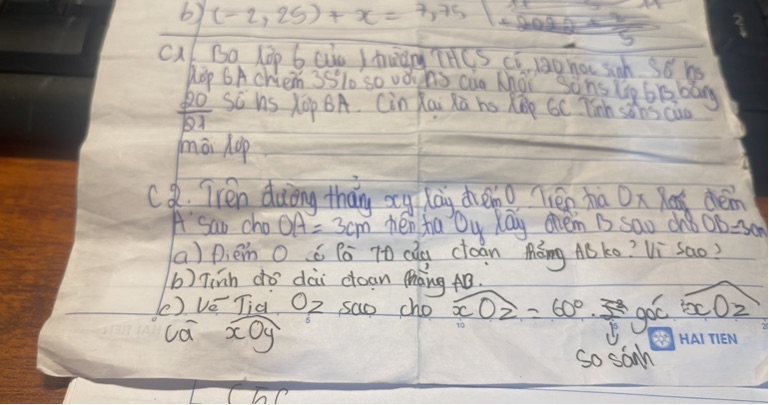 b) (-2,25) + x = 7,75
C1. Ba lớp 6 của 1 trường THCS có 120 học sinh. Số hs
lớp 6A chiếm 35% so với hs của khối. Số hs lớp 6B bằng
20/21 số hs lớp 6A. Còn lại là hs lớp 6C. Tính số hs của
mỗi lớp.
C2. Trên đường thẳng xy lấy điểm O. Trên tia Ox lấy điểm
A sao cho OA = 3cm trên tia Oy lấy điểm B sao cho OB=3cm
a) Điểm O có là TĐ của đoạn thẳng AB ko? Vì sao?
b) Tính độ dài đoạn thẳng AB.
c) Vẽ Tia Oz sao cho xOz = 60°. góc xOz
và xOy
so sánh
HAI TIEN